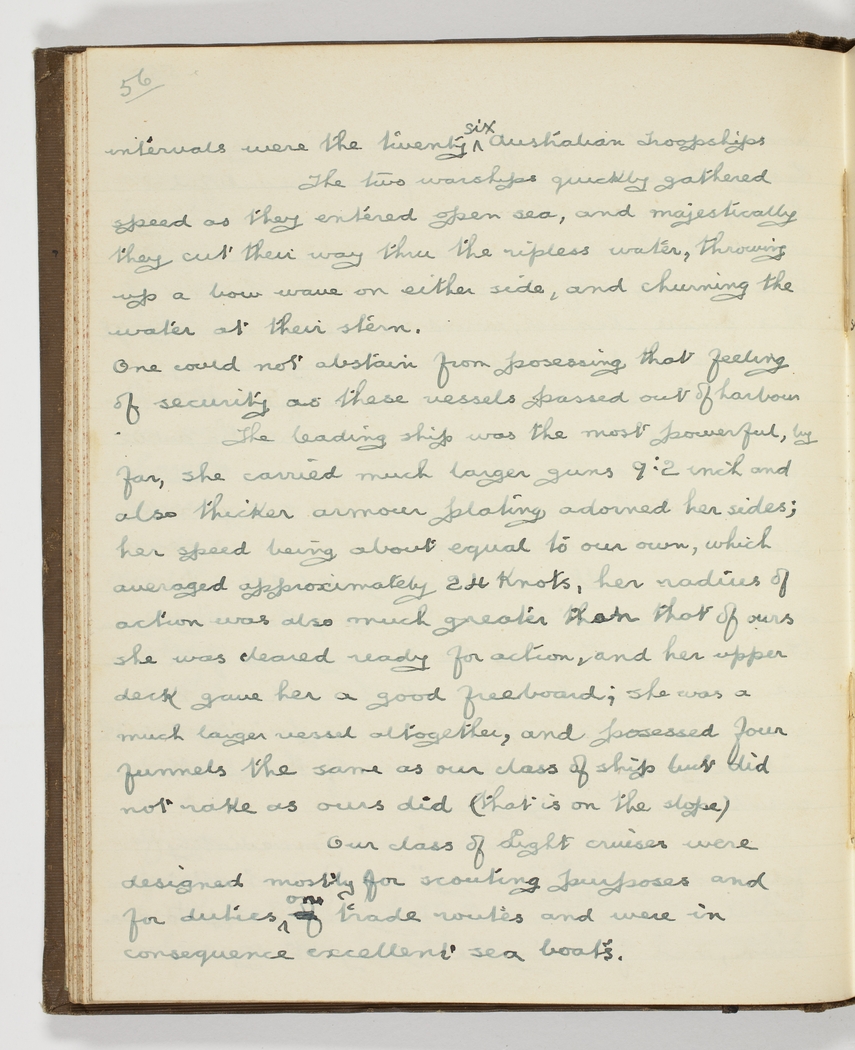 56
intervals were the twenty six Australian Troopships
The two warships quickly gathered
speed as they entered open sea, and majestically
they cut their way thru the ripless water, throwing
up a bow wave on either side, and churning the
water at their stern.
One could not abstain from posessing that feeling
of security as these vessels passed out of harbour
The leading ship was the most powerful, by
far, she carried much larger guns 9:2 inch and
also thicker armour plating adorned her sides;
her speed being about equal to our own, which
averaged approximately 24 Knots, her radius of
action was also much greater than that of ours
she was cleared ready for action, and her upper
deck gave her a good freeboard; she was a
much larger vessel altogether, and posessed four
funnels the same as our class of ship but did
not rake as ours did (that is on the slope)
Our class of Light cruiser were
designed mostly for scouting purposes and
for duties on trade routes and were in
consequence excellent sea boats.